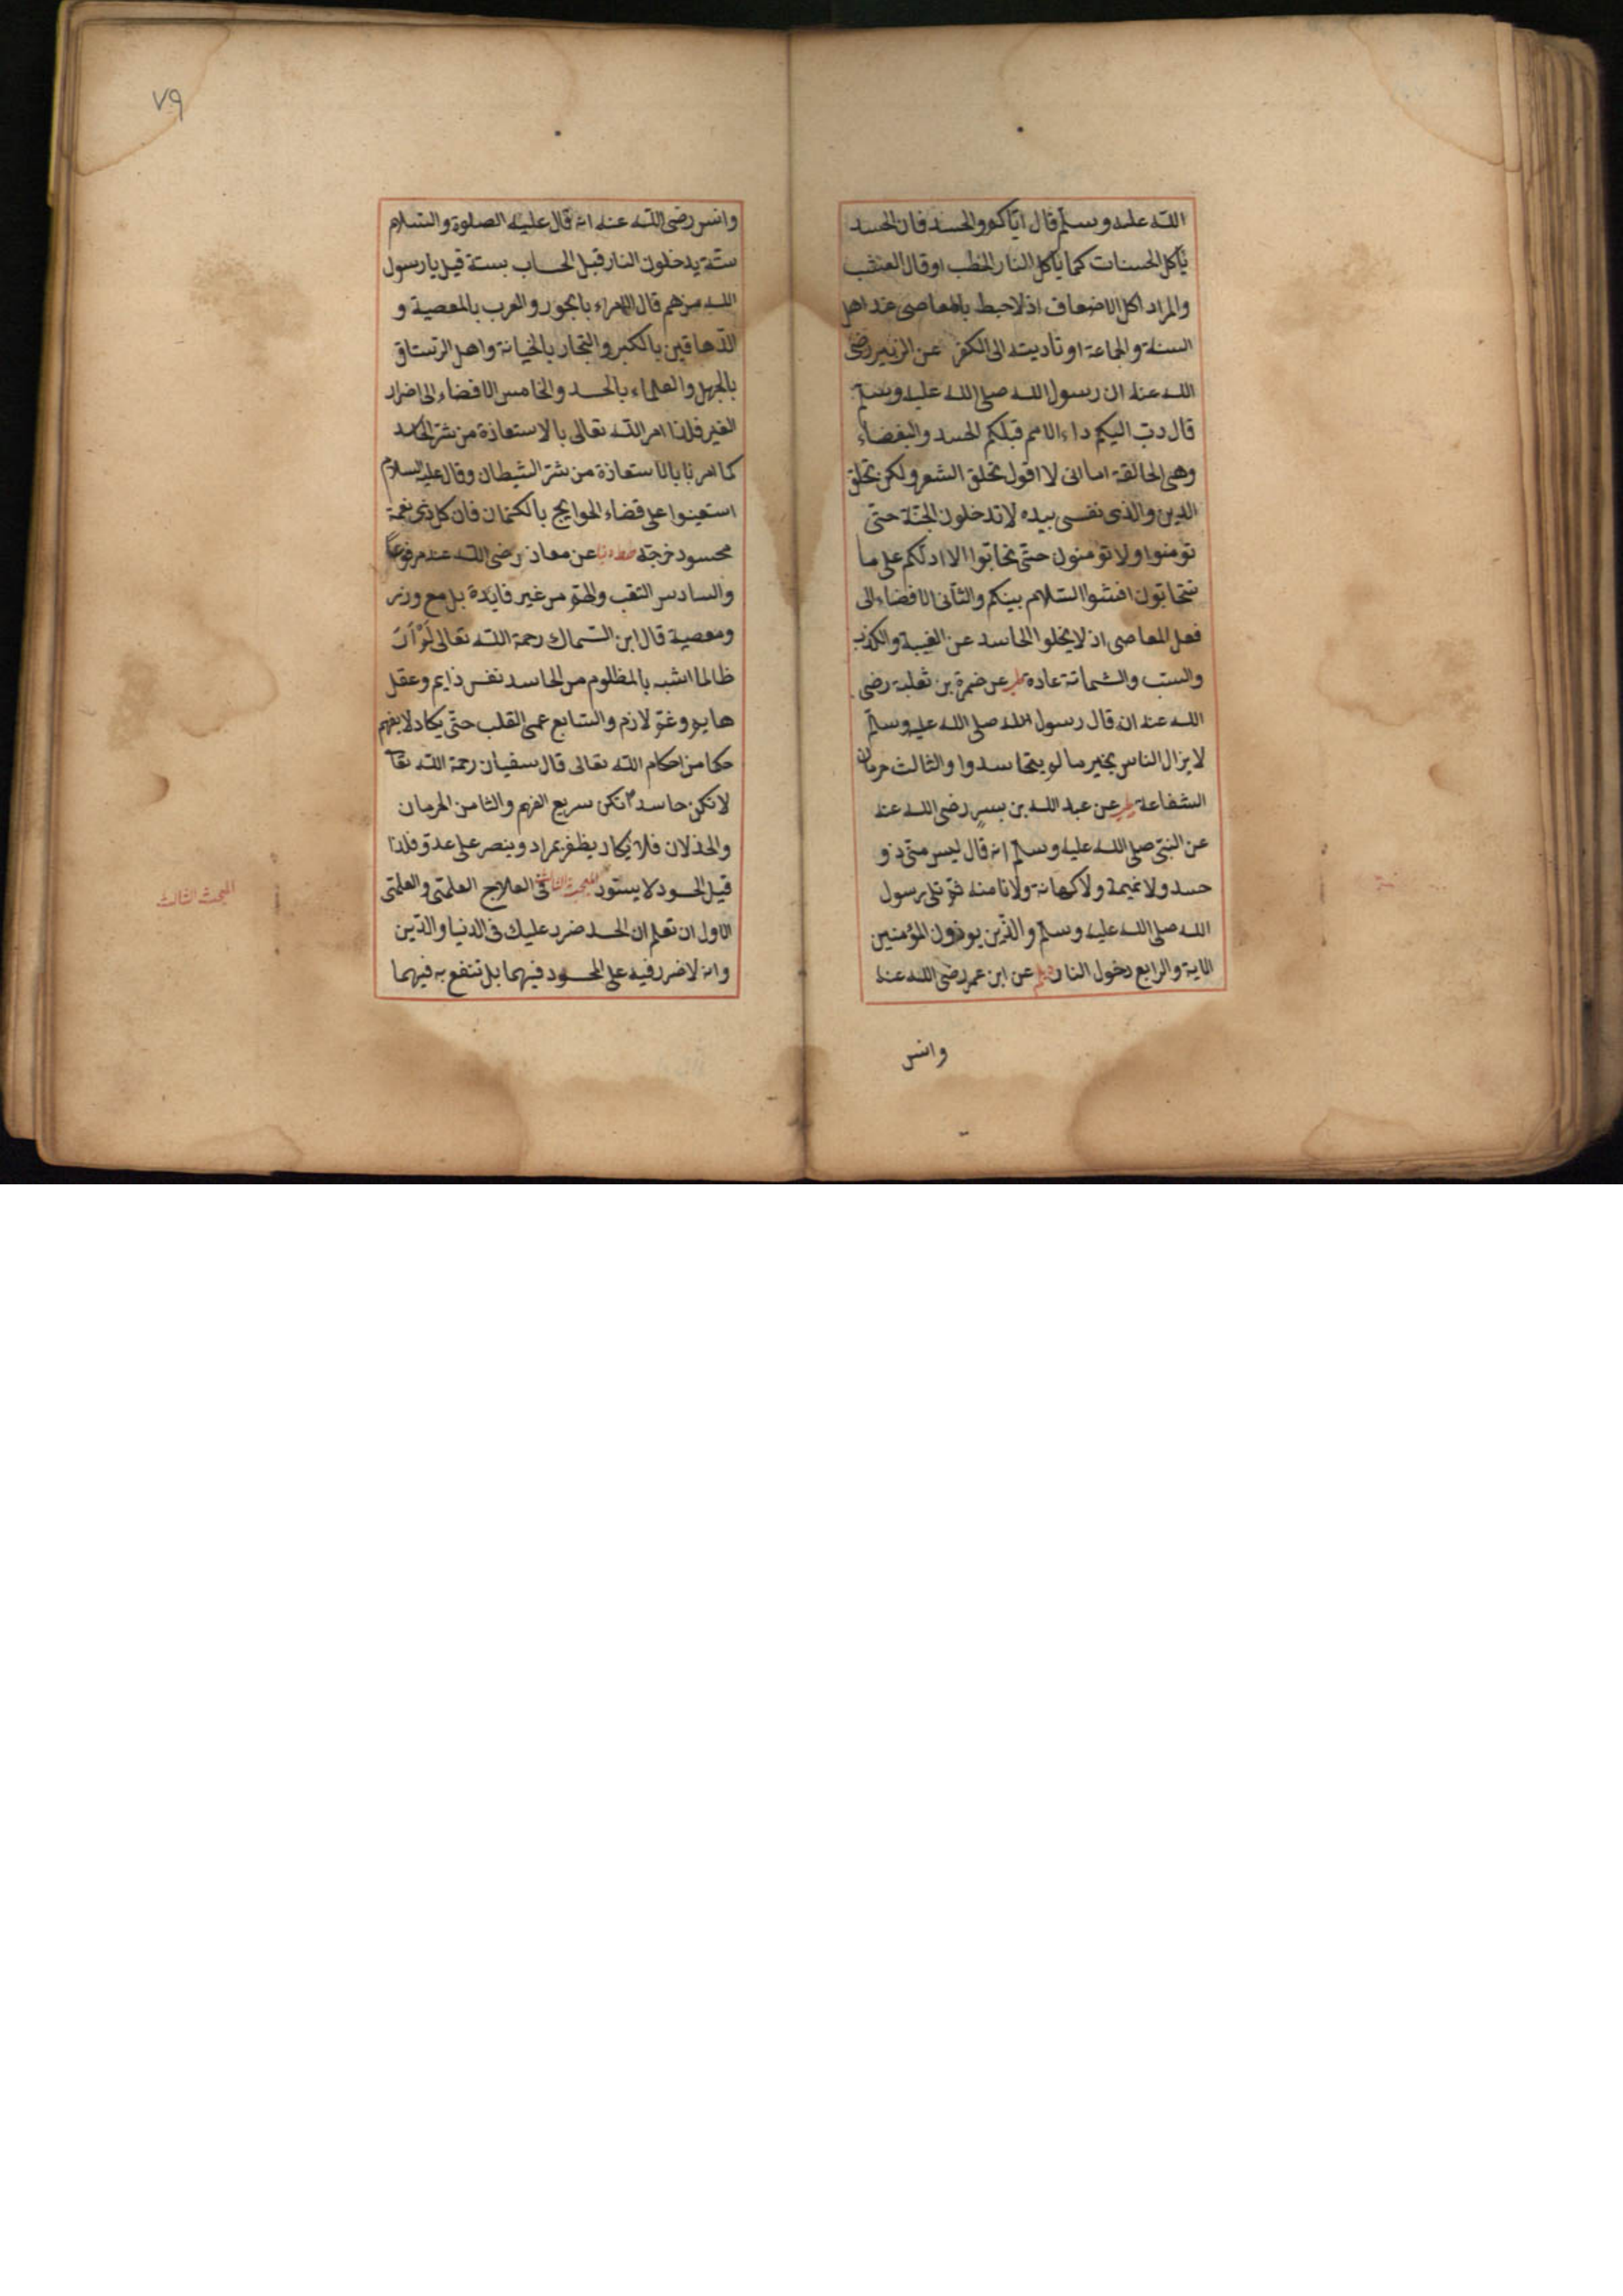 الله عليه وسلم قال اياكم والحسد فان الحسد
يأكل الحسنات كما يأكل النار الحطب او قال العشب
والمراد اكل الاضعاف اذ لا حبط بالمعاصى عند اهل
السنة والجماعة او تأديته الى الكفر عن الزبير رضى
الله عنه ان رسول الله صلى الله عليه وسلم
قال دب اليكم داء الامم قبلكم الحسد والبغضاء
وهى الحالقة اما انى لا اقول تحلق الشعر ولكن تحلق
الدين والذى نفسى بيده لا تدخلون الجنة حتى
تؤمنوا ولا تؤمنون حتى تحابوا الا ادلكم على ما
تتحابون افشوا السلام بينكم والثانى الافضاء الى
فعل المعاصى اذ لا يخلوا الحاسد عن الغيبة والكذب
والسب والشماتة عادة طب عن ضمرة بن ثعلبة رضى
الله عنه انه قال رسول الله صلى الله عليه وسلم
لا يزال الناس بخير ما لم يتحاسدوا والثالث حرمان
الشفاعة طب عن عبد الله بن بسر رضى الله عنه
عن النبى صلى الله عليه وسلم انه قال ليس منى ذو
حسد ولا نميمة ولا كهانة ولا انا منه ثم تلى رسول
الله صلى الله عليه وسلم والذين يوذون المؤمنين
الاية والرابع دخول النار ديلم عن ابن عمر رضى الله عنه
وانس
٧٩
وانس رضى الله عنه انه قال عليه الصلوة والسلام
ستة يدخلون النار قبل الحساب بستة قيل يا رسول
الله من هم قال الامراء بالجور والعرب بالمعصية و
الدهاقين بالكبر والتجار بالخيانة واهل الرستاق
بالجهل والعلماء بالحسد والخامس الافضاء الى اضرار
الغير فلذا امر الله تعالى بالاستعاذة من شر الحاسد
كما امرنا بالاستعاذة من شر الشيطان وقال عليه السلام
استعينوا على قضاء الحوايج بالكتمان فان كل ذى نعمة
محسود خرجه طب دنيا عن معاذ رضى الله عنه مرفوعا
والسادس التعب والهم من غير فايدة بل مع وزر
ومعصية قال ابن السماك رحمة الله تعالى لم ار
ظالما اشبه بالمظلوم من الحاسد نفس دايم وعقل
هايم وغم لازم والسابع عمى القلب حتى يكاد لا يفهم
حكما من احكام الله تعالى قال سفيان رحمة الله تعا
لا تكن حاسدا تكن سريع الفهم والثامن الحرمان
والخذلان فلا يكاد يظفر بمراد وينصر على عدو فلذا
قيل الحسود لا يسود المبحث الثالث فى العلاج العلمى والعملى
الاول ان تعلم ان الحسد ضرر عليك فى الدنيا والدين
وانه لا ضرر فيه على المحسود فيهما بل تنتفع به فيهما
المبحث الثالث